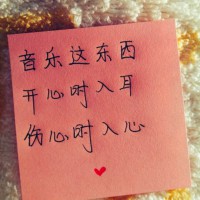 音乐这东西
开心时入耳
伤心时入心